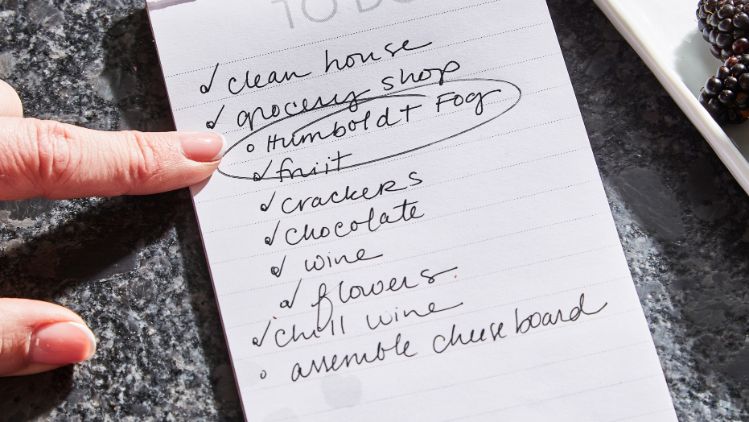 TO DO
clean house
grocery shop
Humboldt Fog
fruit
crackers
chocolate
wine
flowers
chill wine
assemble cheeseboard